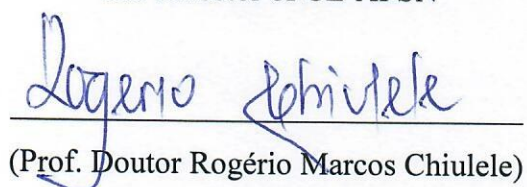 Rogério Chiulele
(Prof. Doutor Rogério Marcos Chiulele)